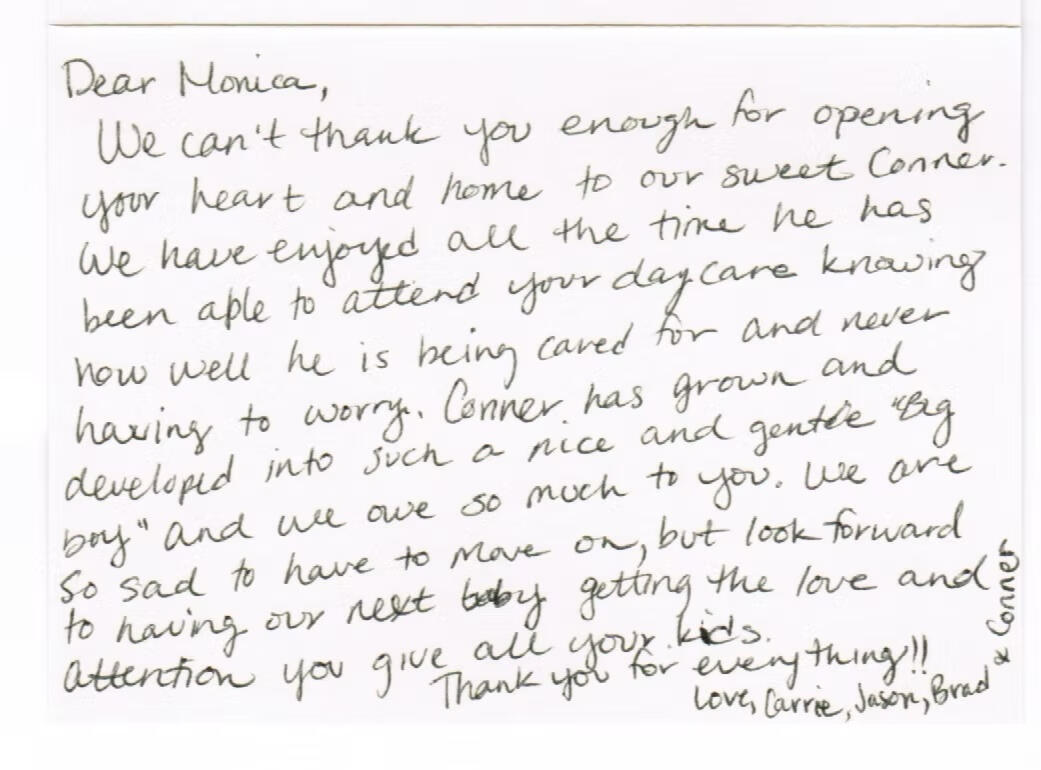 Dear Monica,
We can't thank you enough for opening
your heart and home to our sweet Conner.
We have enjoyed all the time he has
been able to attend your daycare knowing
how well he is being cared for and never
having to worry. Conner has grown and
developed into such a nice and gentle "Big
boy" and we owe so much to you. We are
so sad to have to move on, but look forward
to having our next baby getting the love and
attention you give all your kids.
Thank you for everything!!
Love, Carrie, Jason, Brad & Conner